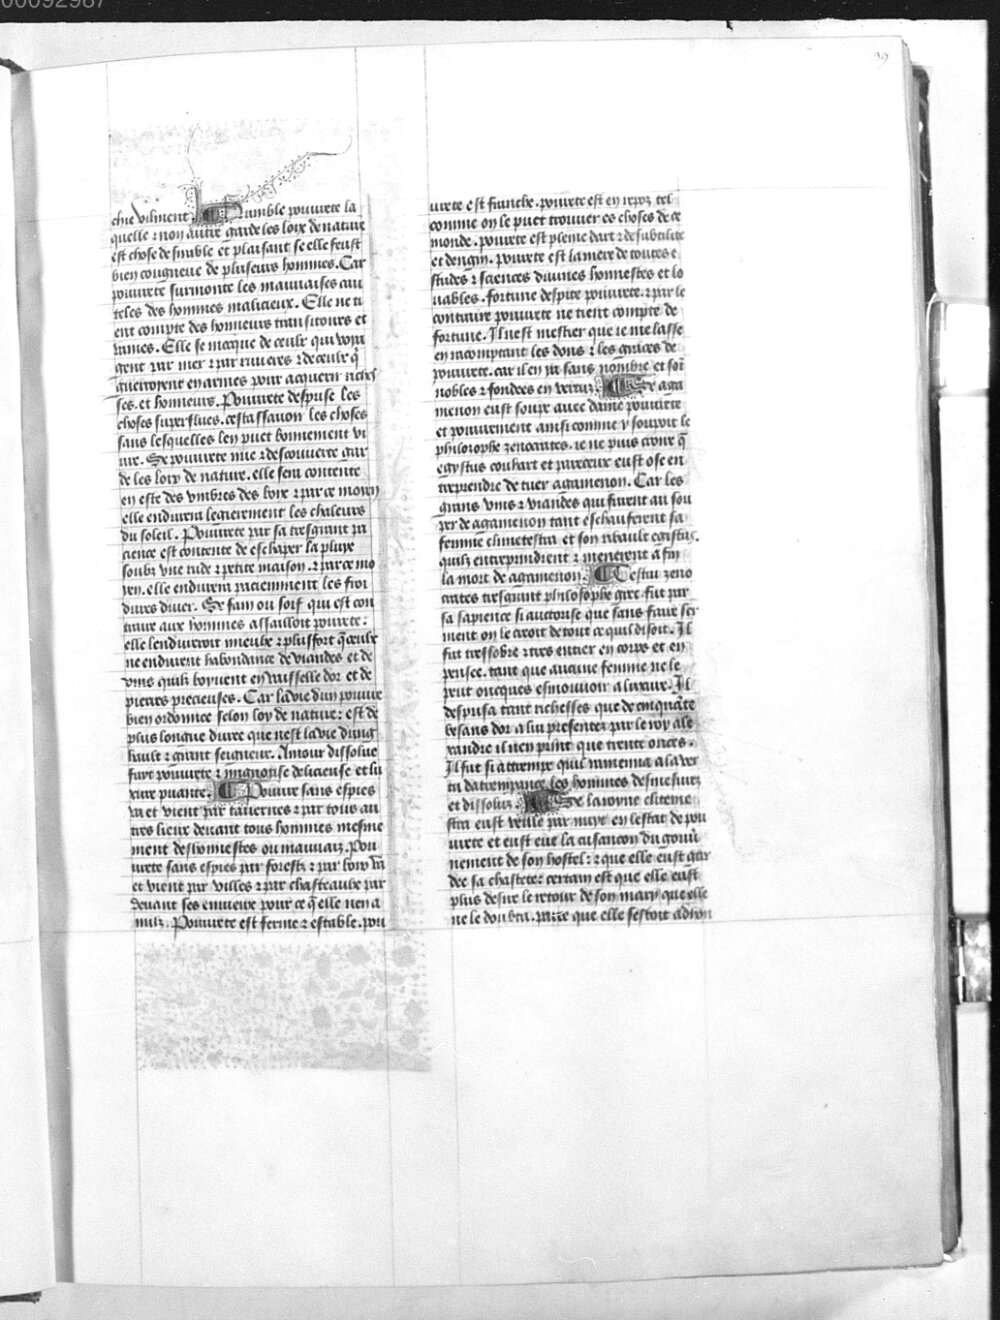 00092987
39
chie vilment. Humble pouurete la
quelle ⁊ non autre garde les loix de nature
est chose desirable et plaisant se elle feust
bien congneue de plusieurs hommes. Car
pouurete surmonte les mauuaises cau
teles des hommes malicieux. Elle ne ti
ent compte des honneurs transitoires et
vaines. Elle se mocque de ceulx qui voya
gent par mer ⁊ par riuieres ⁊ de ceulx q̃
guerroyent en armes pour acquerir riches
ses. et honneurs. Pouurete desprise les
choses superflues. cest assauoir les choses
sans lesquelles len puet bonnement vi
ure. Se pouurete nue ⁊ descouuerte gar
de les loix de nature. elle sera contente
en este des vmbres des bois ⁊ par ce moien
elle endurera legierement les chaleurs
du soleil. Pouurete par sa tresgrant pa
cience est contente de eschaper la pluye
soubz vne rude ⁊ petite maison. ⁊ par ce mo
ien. elle endurera paciemment les froi
dures diuer. Se faim ou soif qui est con
traire aux hommes assailloit pourete:
elle lendureroit mieulx ⁊ plus fort q̃ ceulx
ne endurent habondance de viandes et de
vins quilz boyuent en vaisselle dor et de
pierres precieuses. Car la vie dun pouure
bien ordonnee selon loy de nature: est de
plus longue duree que nest la vie dung
hault ⁊ grant seigneur. Amour dissolue
fuit pouurete ⁊ mignotise delicieuse et lu
xure puante. Pouure sans espies
va et vient par tauernes ⁊ par tous au
tres lieux deuant tous hommes mesme
ment deshonnestes ou mauuaiz. Pou
urete sans espies par forestz ⁊ par bois va
et vient par villes ⁊ par chasteaulx par
deuant ses enuieux pour ce q̃ elle nen a
nulz. Pouurete est ferme ⁊ estable. pou
urete est franche. pourete est en repoz tel
comme on le puet trouuer es choses de ce
monde. pourete est pleine dart ⁊ de subtilite
et dengin. pourete est la mere de toutes e
studes ⁊ sciences diuines honnestes et lo
uables. fortune despite pouurete. ⁊ par le
contraire pouurete ne tient compte de
fortune. Il nest mestier que ie me lasse
en racomptant les dons ⁊ les graces de
pouurete. car il en ya sans nombre et sõt
nobles ⁊ fondees en vertuz. Se aga
menon eust soupe auec dame pouurete
et pourement ainsi comme y soupoit le
philosophe zenocrates. ie ne puis croire q̃
egystus couhart et pareceux eust ose en
treprendre de tuer agamenon. Car les
grans vins ⁊ viandes qui furent au sou
per de agamenon tant eschauferent sa
femme climetestra et son ribault egistus.
quilz entreprindrent ⁊ menerent a fin
la mort de agamenon. Cestui zeno
crates tresgrant philosophe grec fut par
sa sapience si auctorise que sans faire ser
ment on le croit de tout ce quil disoit. Il
fut tressobre ⁊ tres entier en corps et en
pensee. tant que aucune femme ne le
peut oncques esmouuoir a luxure. Il
desprisa tant richesses que de cinquãte
besans dor a lui presentez par le roy ale
xandre il nen print que trente onces.
Il fut si attrempe quil ramenia a la ver
tu dattrempance les hommes desmesurez
et dissoluz. Se la royne clitemes
stra eust veille par nuyt en lestat de pou
urete et eust eue la cusancon du gouũ
nement de son hostel: ⁊ que elle eust gar
dee sa chastete: certain est que elle eust
plus desire le retour de son mary que elle
ne le doubta. parce que elle sestoit adõn